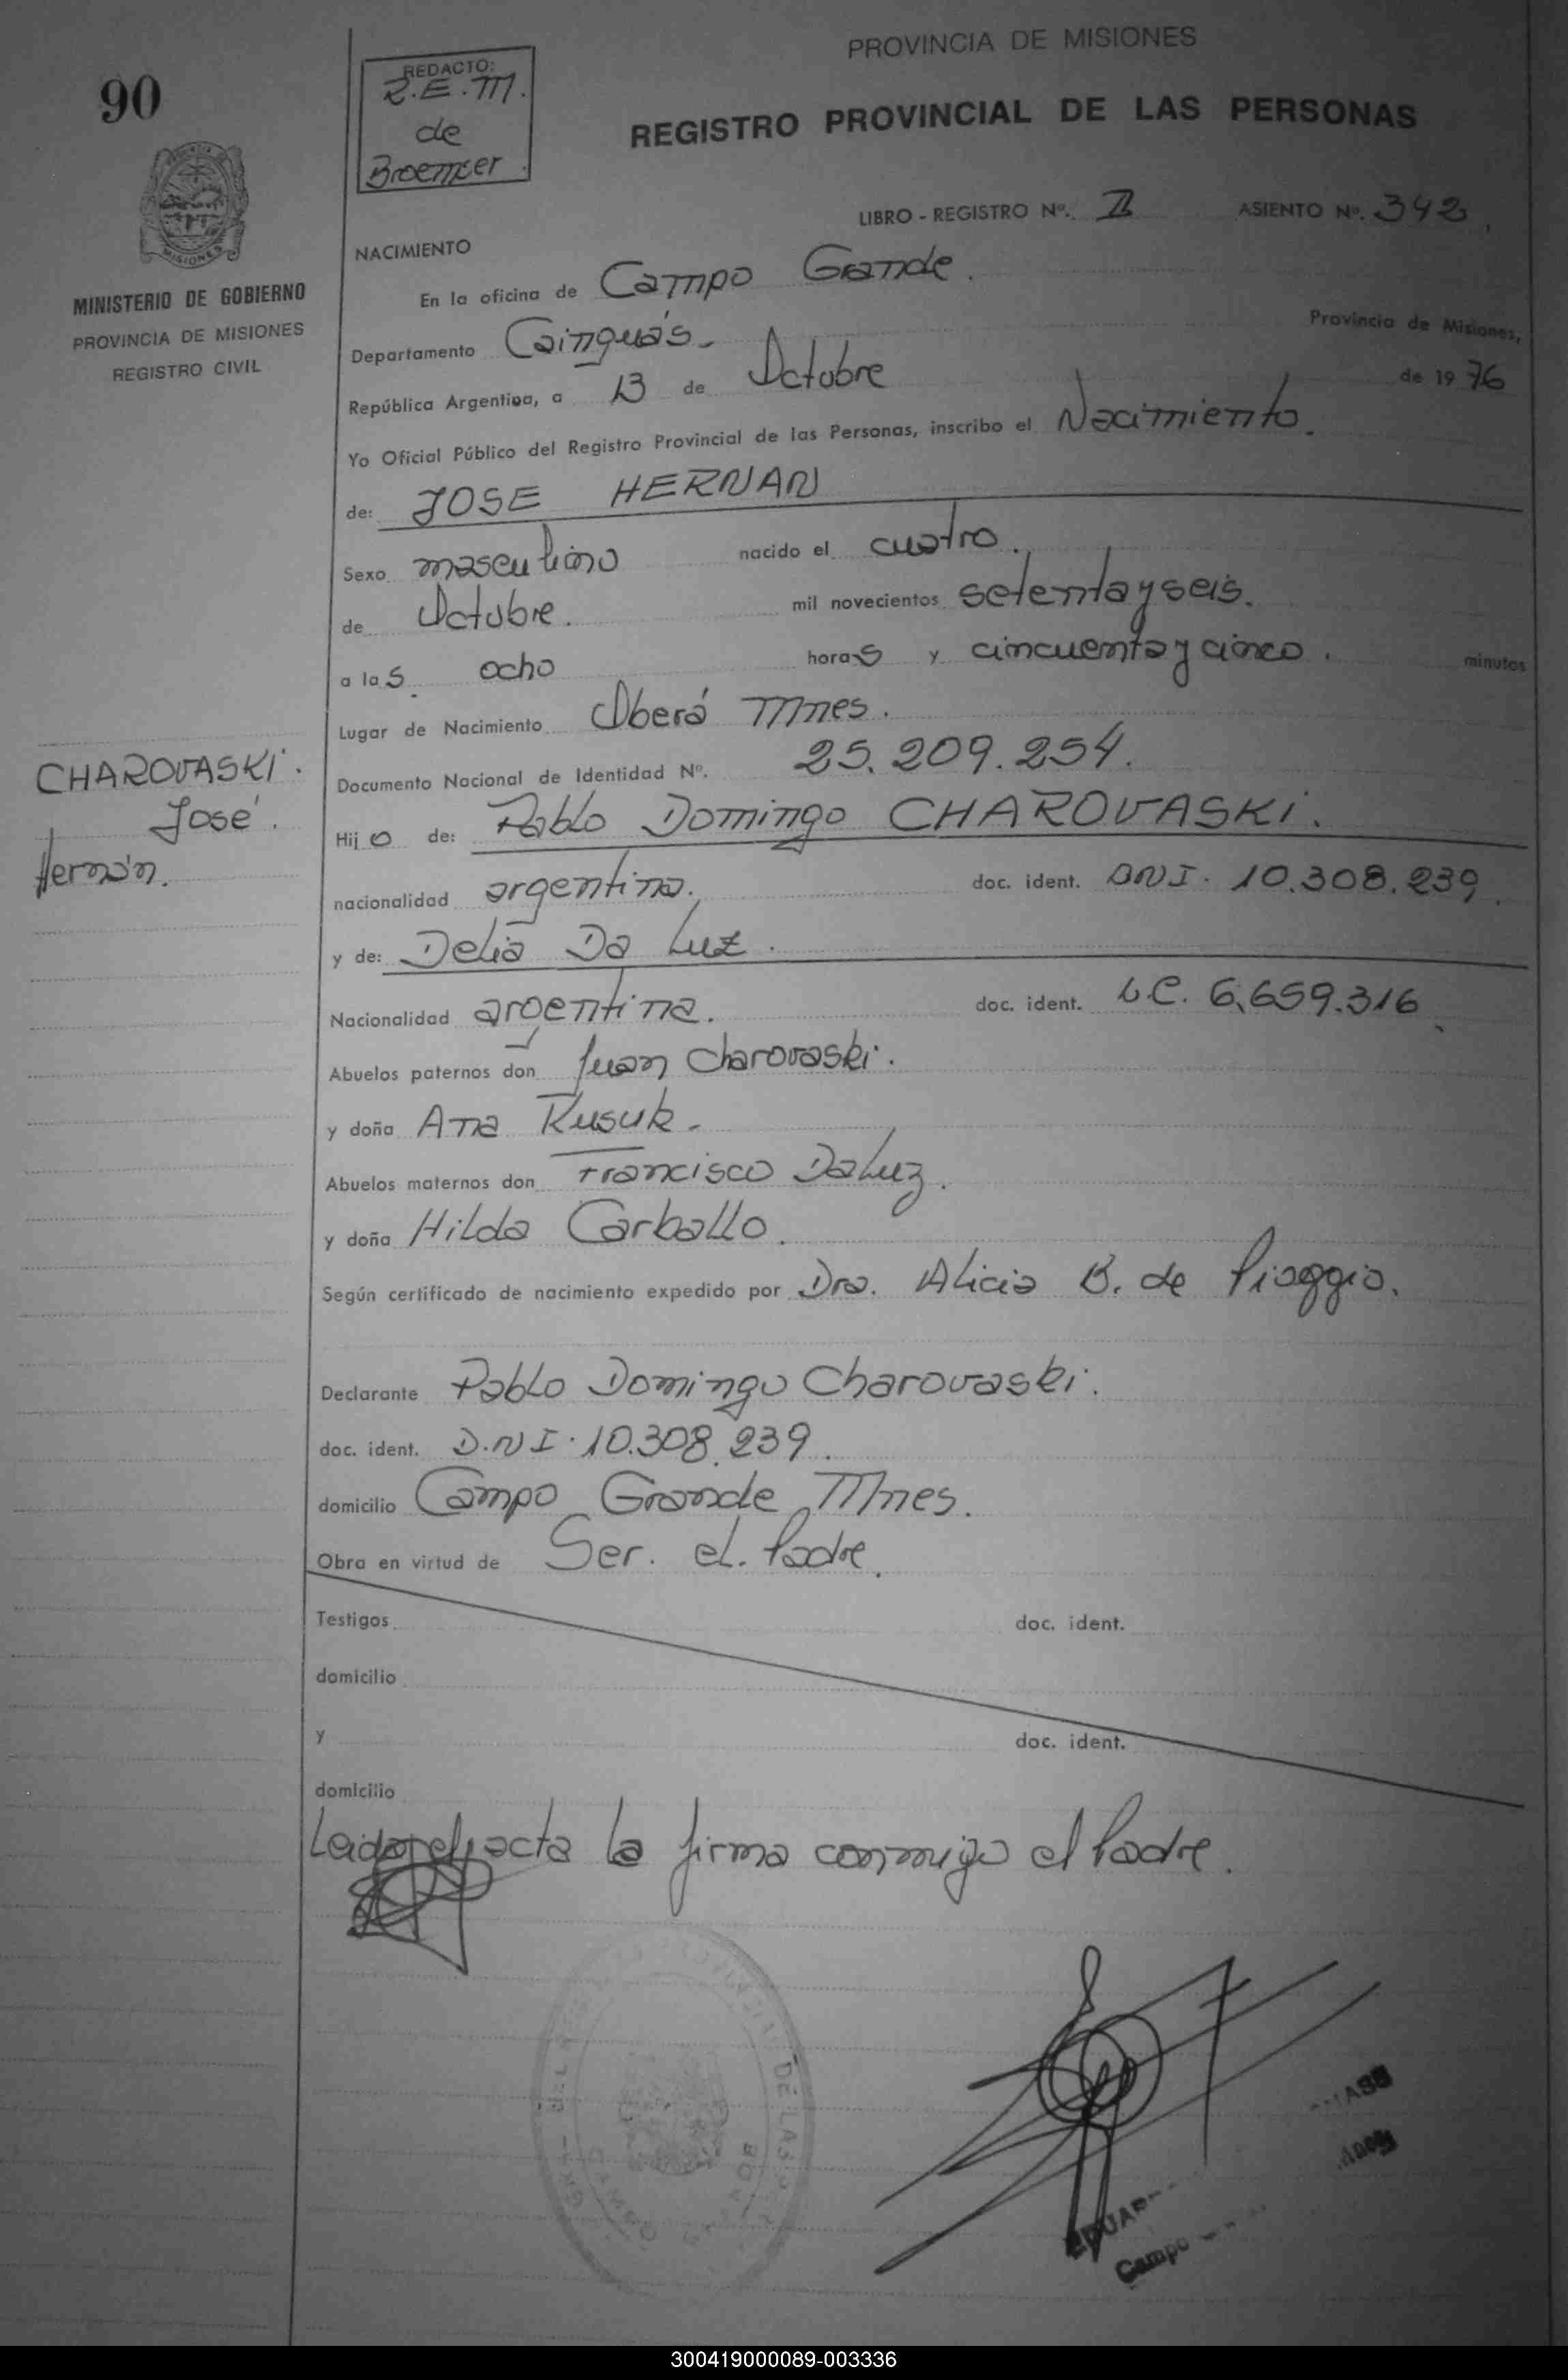 90
REDACTO:
R.E.M.
de
Broemser
PROVINCIA DE MISIONES
REGISTRO PROVINCIAL DE LAS PERSONAS
MISIONES
MINISTERIO DE GOBIERNO
PROVINCIA DE MISIONES
REGISTRO CIVIL
LIBRO - REGISTRO Nº. II ASIENTO Nº. 342
NACIMIENTO
En la oficina de Campo Grande.
Departamento Cainguás. Provincia de Misiones,
República Argentina, a 13 de Octubre de 1976
Yo Oficial Público del Registro Provincial de las Personas, inscribo el Nacimiento.
de: JOSE HERNAN
Sexo masculino nacido el cuatro.
de Octubre. mil novecientos setenta y seis.
a las ocho horas y cincuenta y cinco. minutos
Lugar de Nacimiento Oberá Mnes.
Documento Nacional de Identidad Nº. 25.209.254.
CHAROVASKI.
José.
Hernán.
Hijo de: Pablo Domingo CHAROVASKI.
nacionalidad argentina. doc. ident. DNI. 10.308.239.
y de: Delia Da Luz.
Nacionalidad argentina. doc. ident. L.C. 6.659.316
Abuelos paternos don Juan Charovaski.
y doña Ana Kusuk.
Abuelos maternos don Francisco Da Luz.
y doña Hilda Carballo.
Según certificado de nacimiento expedido por Dra. Alicia B. de Piaggio.
Declarante Pablo Domingo Charovaski.
doc. ident. D.N.I. 10.308.239.
domicilio Campo Grande Mnes.
Obra en virtud de Ser. el. Padre.
Testigos doc. ident.
domicilio
y doc. ident.
domicilio
Leida el acta la firma conmigo el Padre.
DE LAS
Campo
300419000089-003336